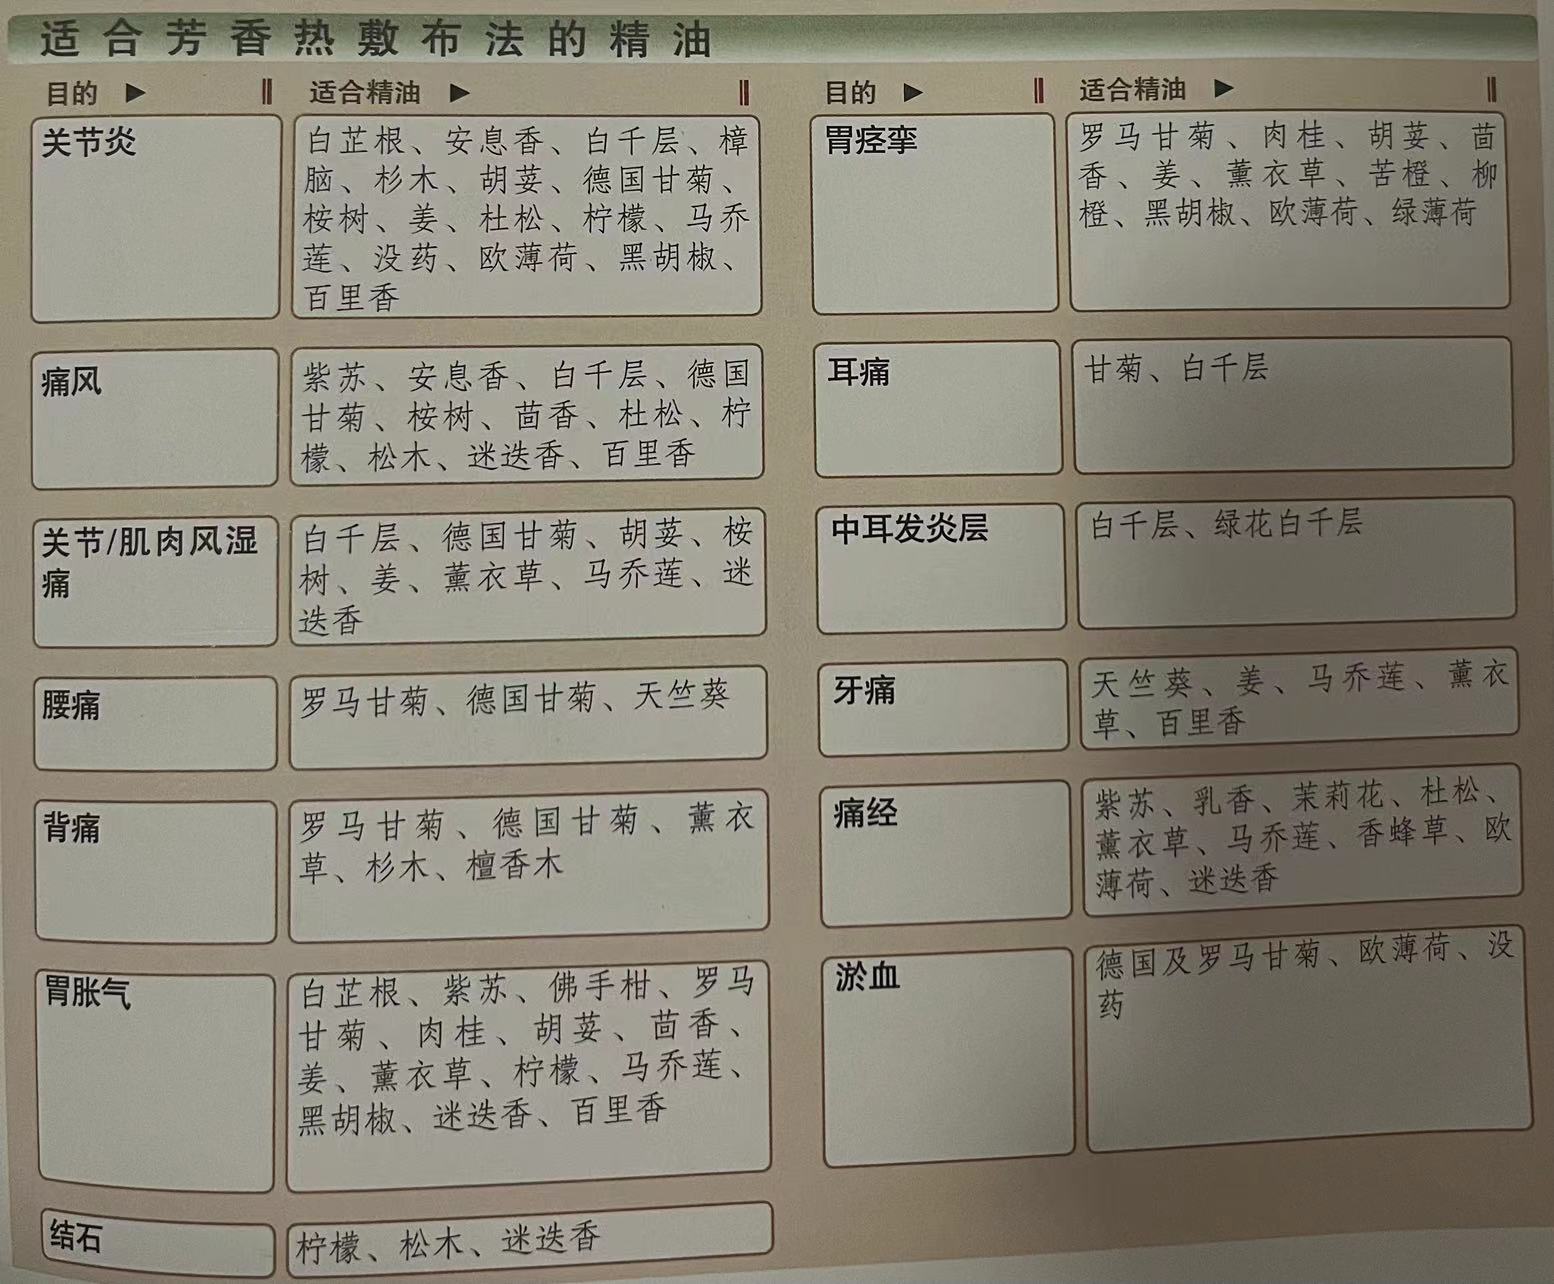 适合芳香热敷布法的精油
目的 ▶ 适合精油 ▶
关节炎
白芷根、安息香、白千层、樟
脑、杉木、胡荽、德国甘菊、
桉树、姜、杜松、柠檬、马乔
莲、没药、欧薄荷、黑胡椒、
百里香
痛风
紫苏、安息香、白千层、德国
甘菊、桉树、茴香、杜松、柠
檬、松木、迷迭香、百里香
关节/肌肉风湿
痛
白千层、德国甘菊、胡荽、桉
树、姜、薰衣草、马乔莲、迷
迭香
腰痛
罗马甘菊、德国甘菊、天竺葵
背痛
罗马甘菊、德国甘菊、薰衣
草、杉木、檀香木
胃胀气
白芷根、紫苏、佛手柑、罗马
甘菊、肉桂、胡荽、茴香、
姜、薰衣草、柠檬、马乔莲、
黑胡椒、迷迭香、百里香
结石
柠檬、松木、迷迭香
目的 ▶ 适合精油 ▶
胃痉挛
罗马甘菊、肉桂、胡荽、茴
香、姜、薰衣草、苦橙、柳
橙、黑胡椒、欧薄荷、绿薄荷
耳痛
甘菊、白千层
中耳发炎层
白千层、绿花白千层
牙痛
天竺葵、姜、马乔莲、薰衣
草、百里香
痛经
紫苏、乳香、茉莉花、杜松、
薰衣草、马乔莲、香蜂草、欧
薄荷、迷迭香
淤血
德国及罗马甘菊、欧薄荷、没
药